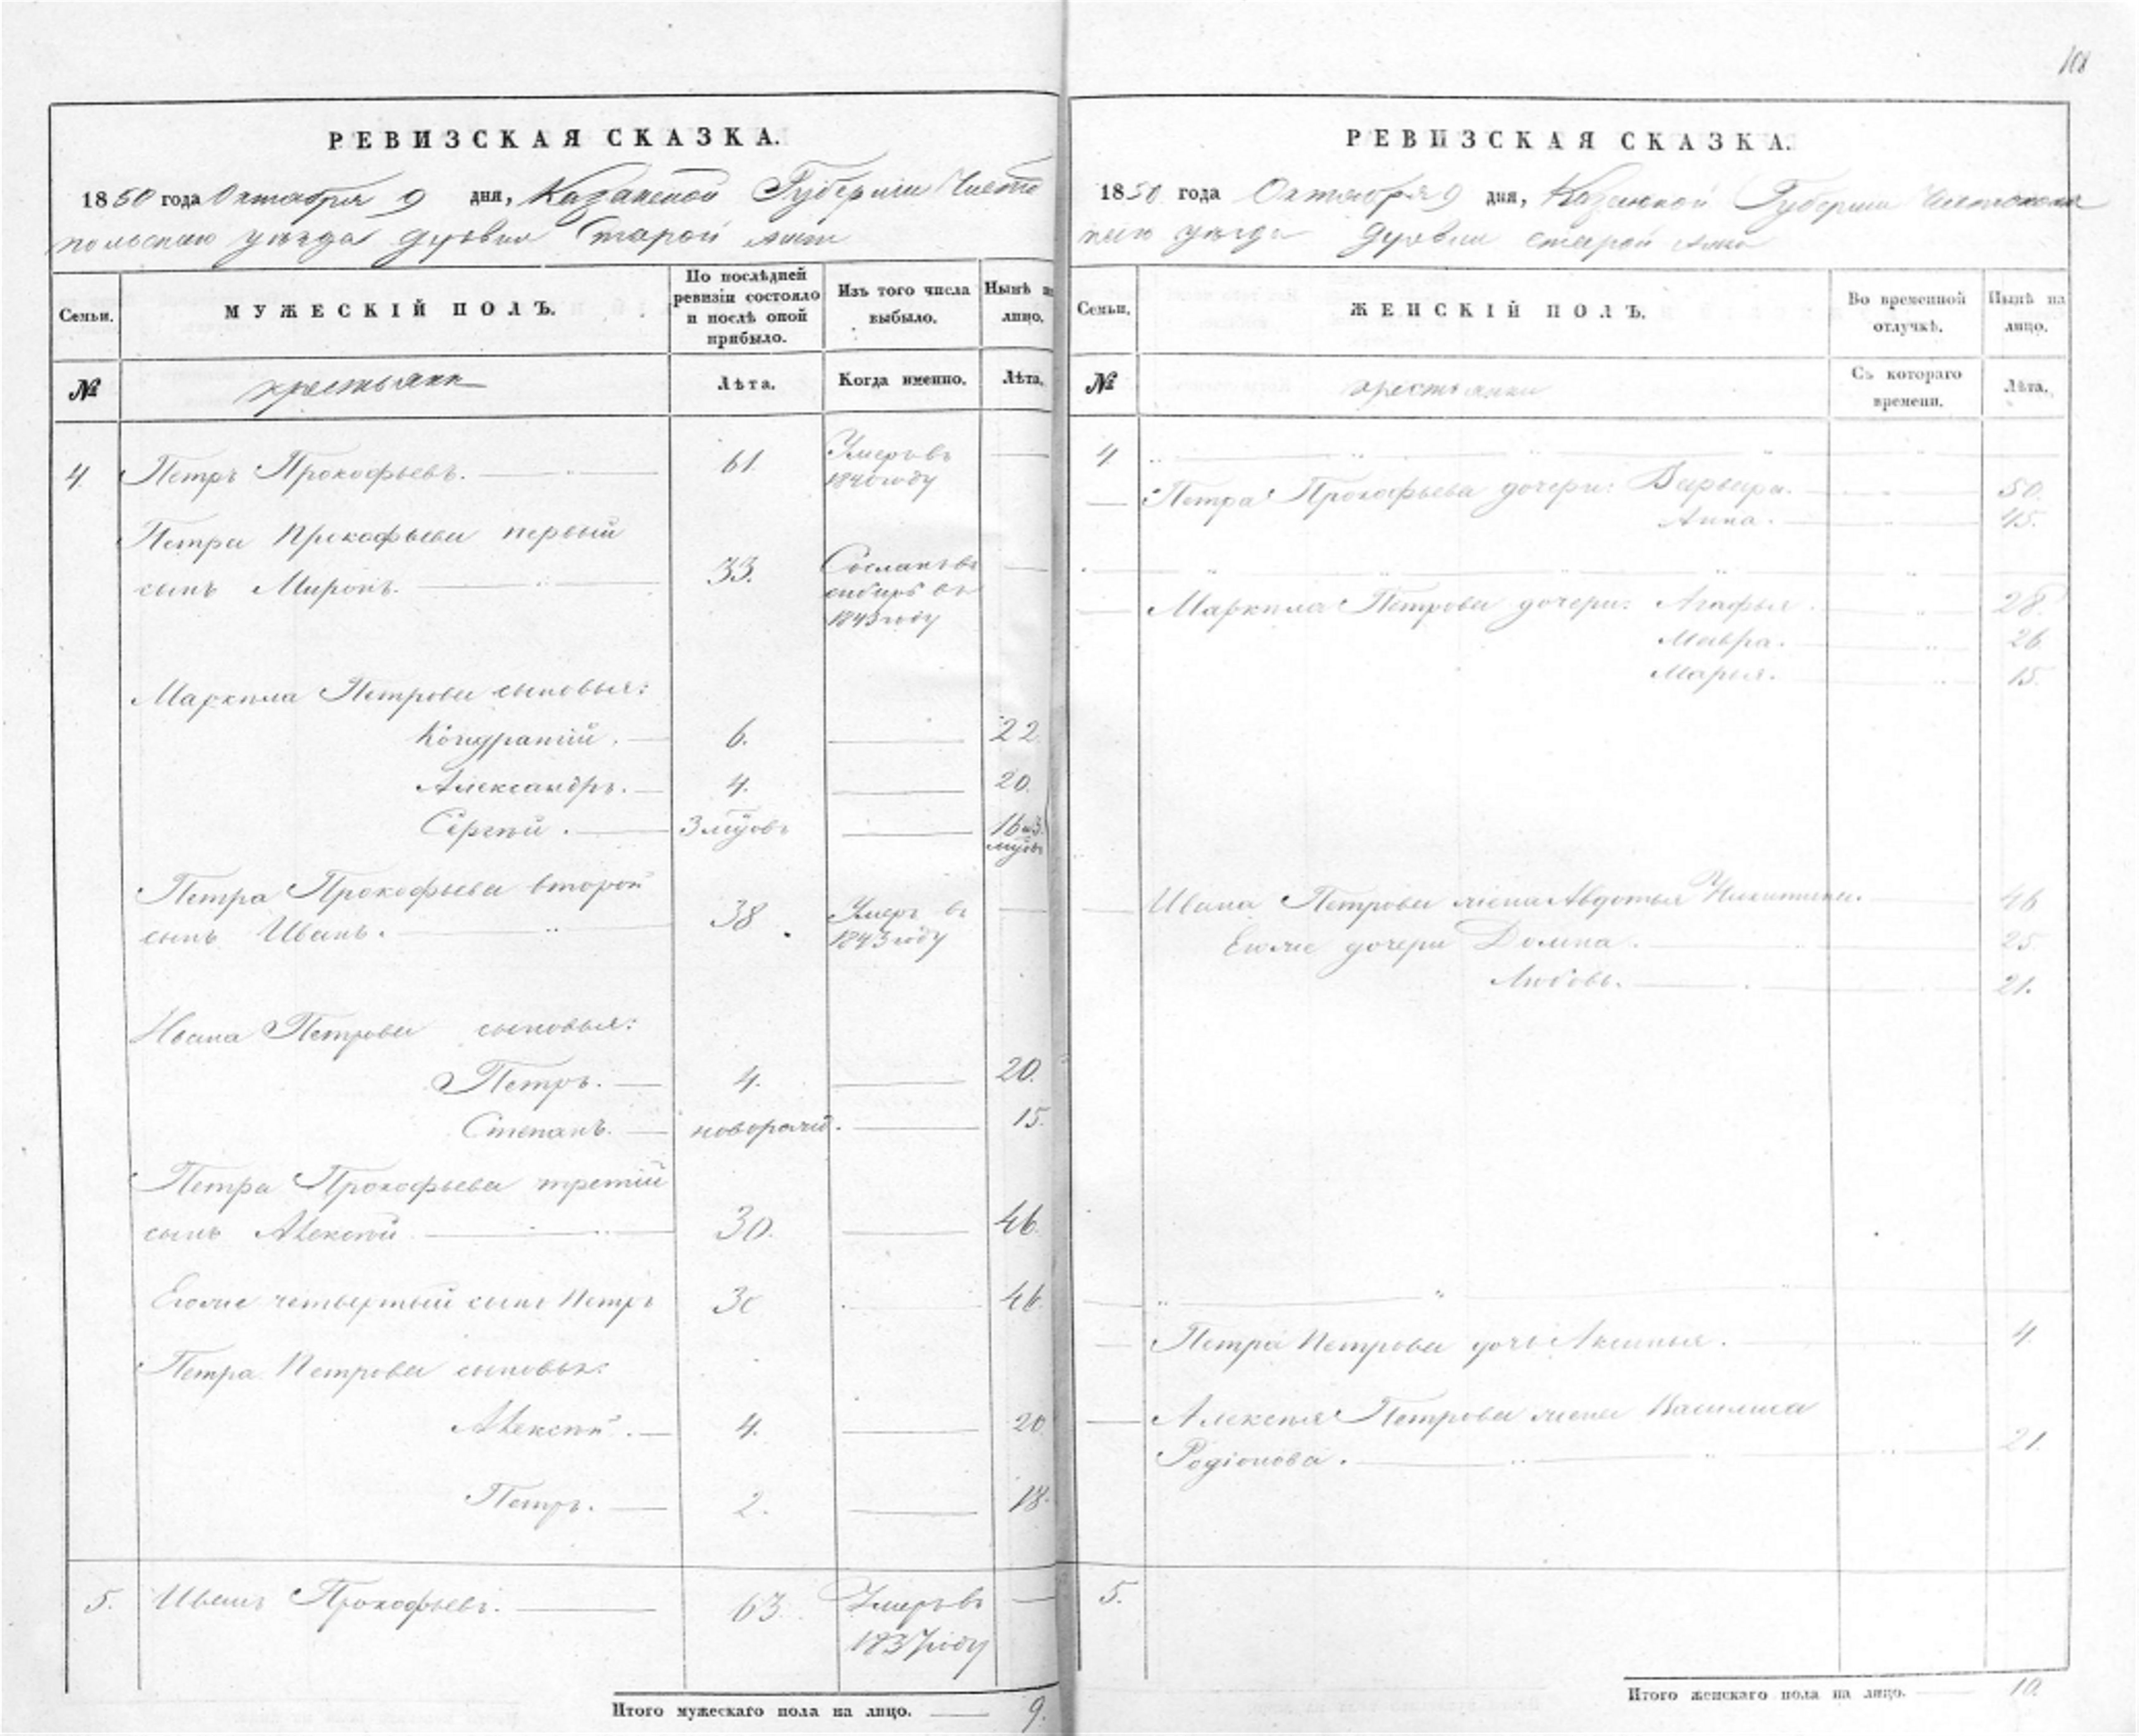 108
РЕВИЗСКАЯ СКАЗКА.
1850 года Октября 9 дня, Казанской Губернiи Чисто
польскаго уѣзда Деревни Старой
Семьи.
МУЖЕСКIЙ ПОЛЪ.
По послѣдней ревизiи состояло и послѣ оной прибыло.
Изъ того числа выбыло.
Нынѣ на лицо.
№
крестьяне
Лѣта.
Когда именно.
Лѣта.
4. Петръ Прокофьевъ. 61. Умеръ въ
1840 году
Петра Прокофьева первый
сынъ Миронъ. 33. Сосланъ въ
сибирь въ
1843 году
Маркела Петрова сыновья:
Кондратiй. 6. 22.
Александръ. 4. 20.
Сергѣй. 3 мѣсе. 16 и 3.
Петра Прокофьева второй
сынъ Иванъ. 38. Умеръ въ
1843 году
Ивана Петрова сыновья:
Петръ. 4. 20.
Степанъ. новорожд. 15.
Петра Прокофьева третiй
сынъ Алексѣй 30. 46.
Егоже четвертый сынъ Петръ 30 46.
Петра Петрова сыновья:
Алексѣй. 4. 20
Петръ. 2. 18.
5. Иванъ Прокофьевъ. 63. Умеръ въ
1837 году
Итого мужескаго пола на лицо. 9.
РЕВИЗСКАЯ СКАЗКА.
1850 года Октября 9 дня, Казанской Губернiи Чистополь
скаго уѣзда Деревни Старой
Семьи.
ЖЕНСКIЙ ПОЛЪ.
Во временной отлучкѣ.
Нынѣ на лицо.
№
крестьянки
Съ котораго времени.
Лѣта.
4.
Петра Прокофьева дочери: Варвара. 50.
Анна. 45.
Маркела Петрова дочери: Агафья. 28.
Мавра. 26
Марья. 15.
Ивана Петрова жена Авдотья Никитина. 46
Егоже дочери Домна. 25
Любовь. 21.
Петра Петрова дочь Аксинья. 4
Алексѣя Петрова жена Василиса
Родiонова. 21.
5.
Итого женскаго пола на лицо. 10.